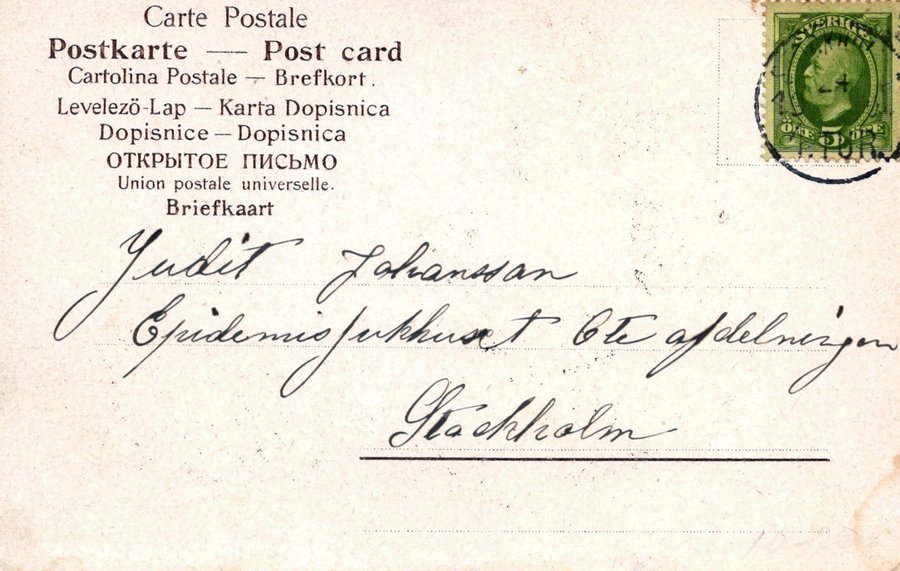 Carte Postale
Postkarte — Post card
Cartolina Postale — Brefkort.
Levelező-Lap — Karta Dopisnica
Dopisnice — Dopisnica
ОТКРЫТОЕ ПИСЬМО
Union postale universelle.
Briefkaart
SVERIGE
24
ÖRE 5 ÖRE
Judit Johansson
Epidemisjukhuset 6te afdelningen
Stockholm